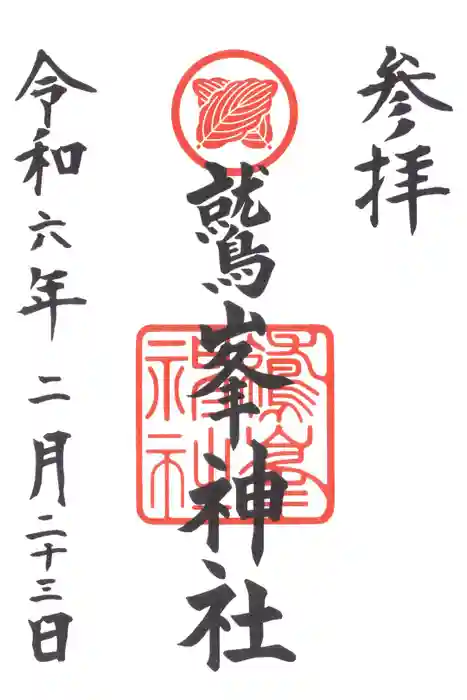 参拝
鷲峯神社
令和六年二月二十三日